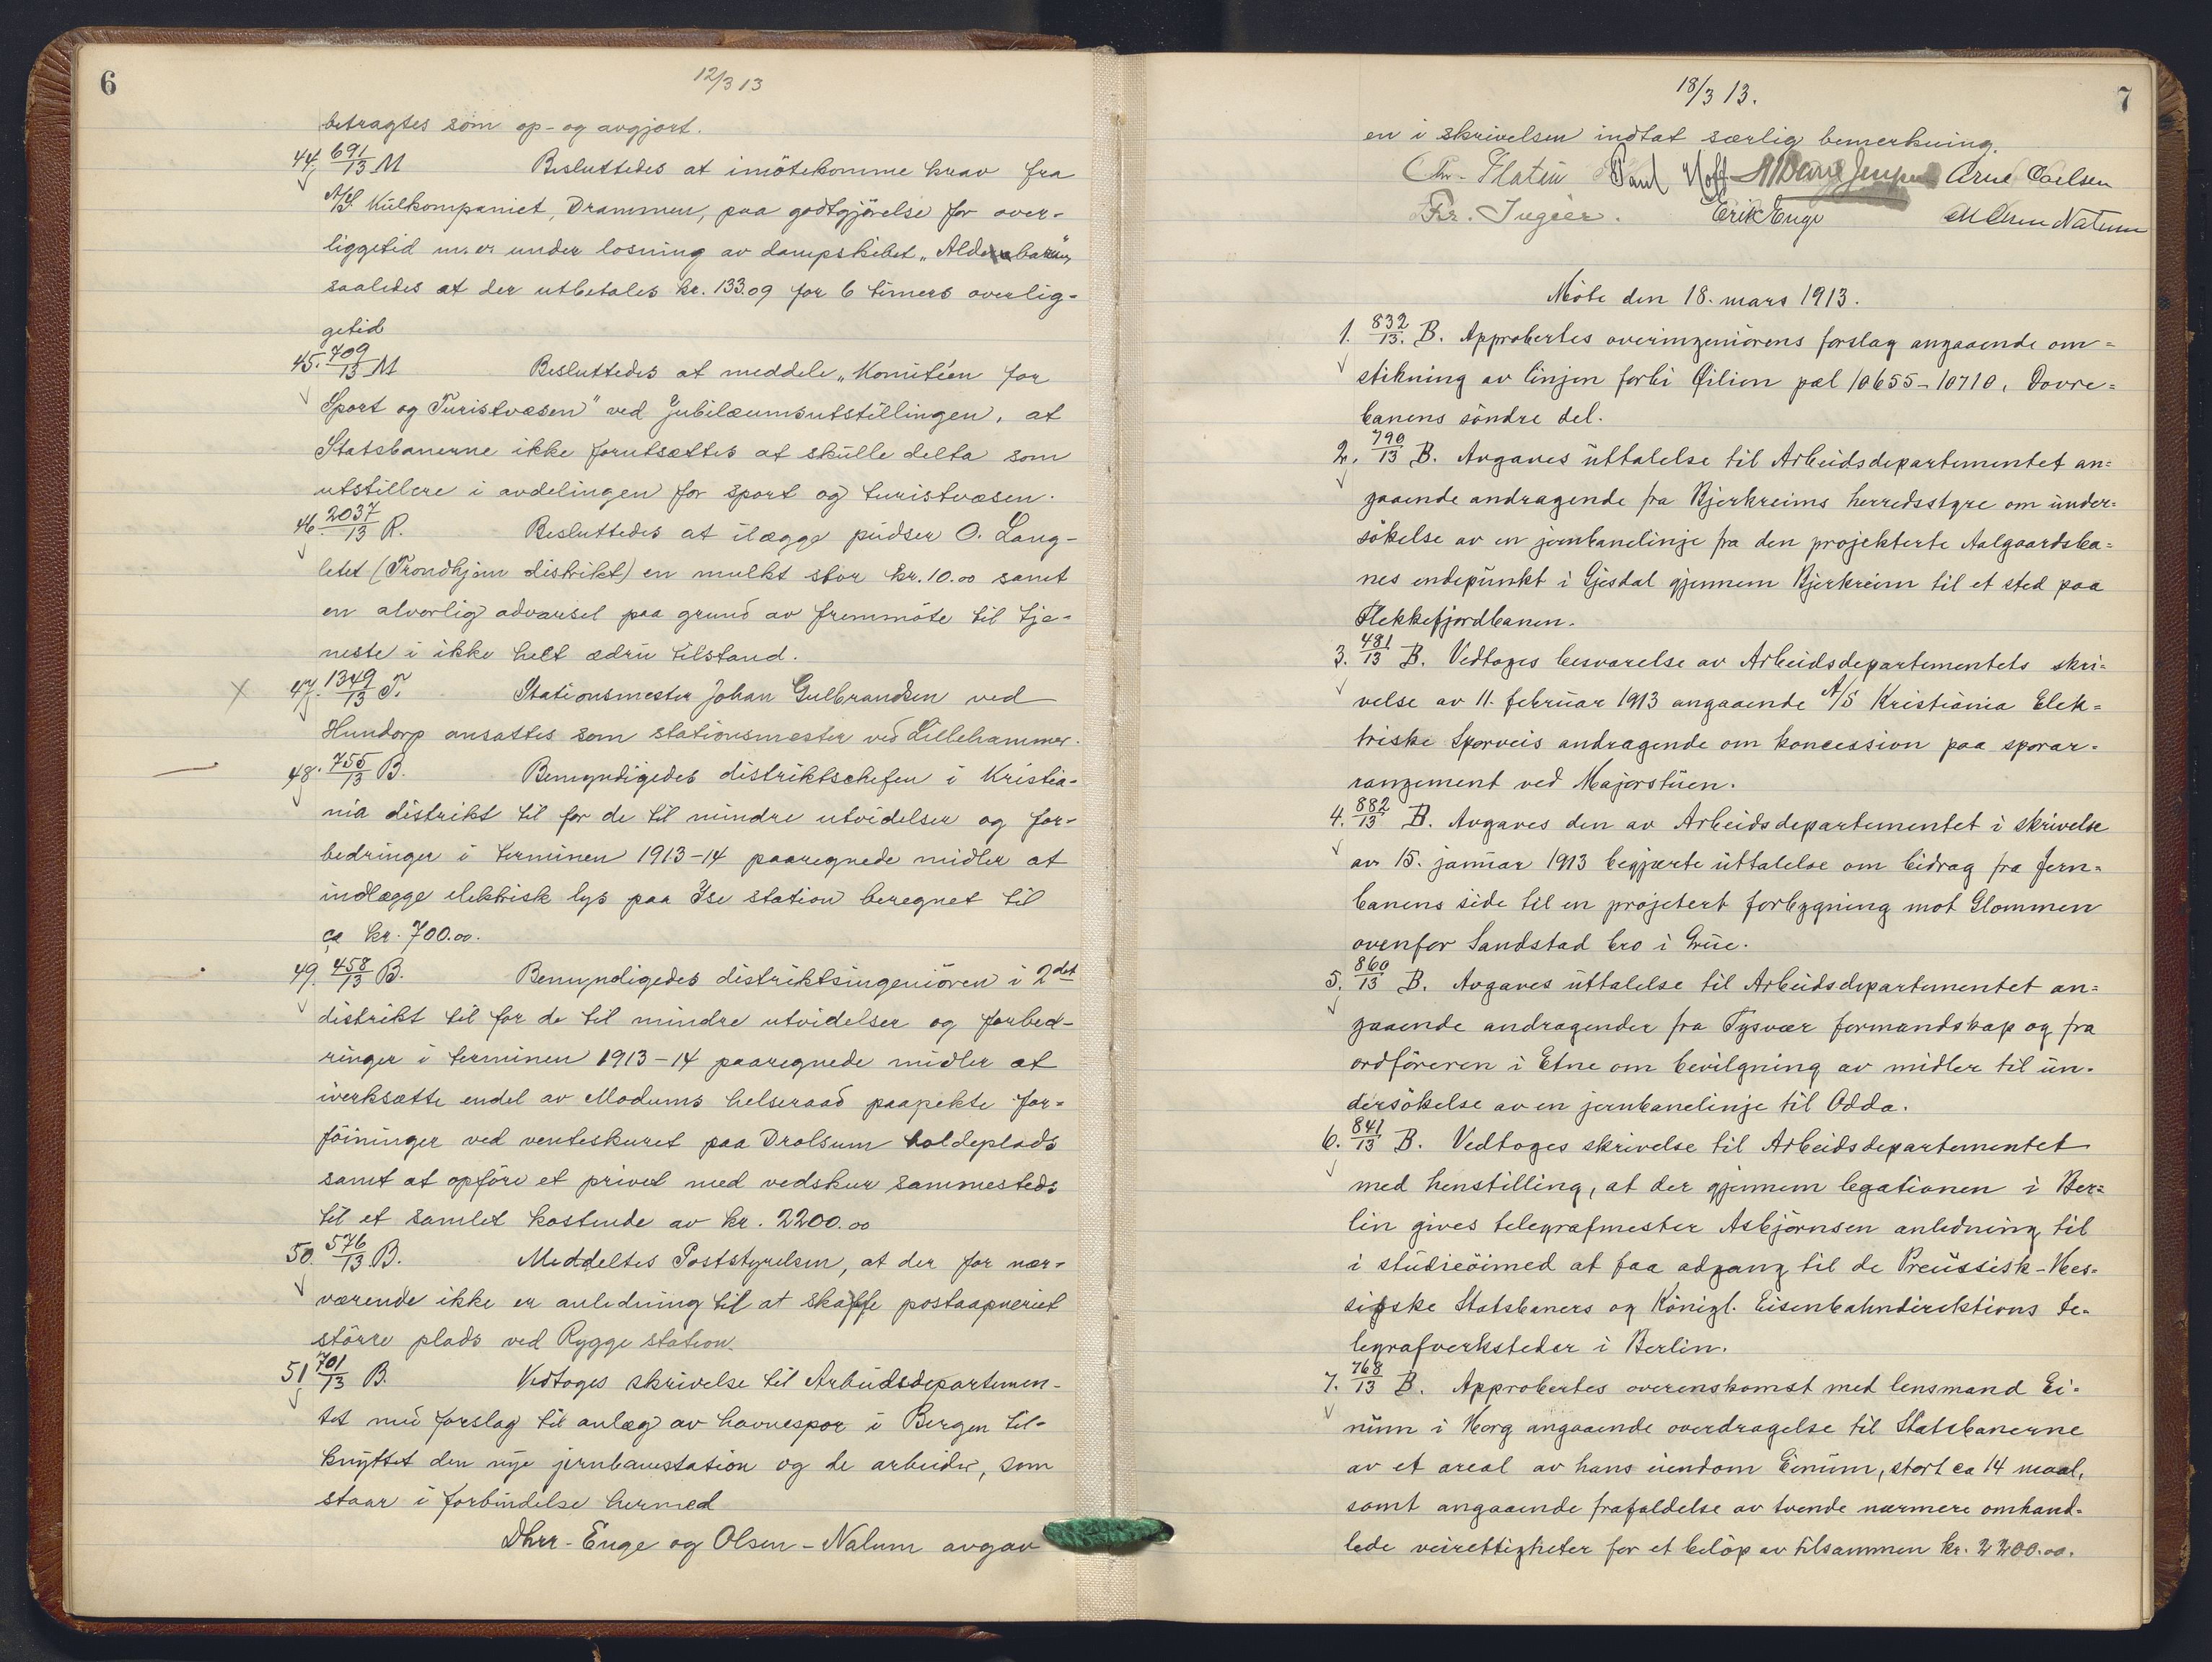 6
12/3 13
betragtes som op- og avgjort.
44. 691/13 M Besluttedes at imötekomme krav fra
A/S. Kulkompaniet, Drammen, paa godtgjörelse for over-
liggetid m. v. under losning av dampskibet „Aldebaran"
saaledes at der utbetales kr. 133.09 for 6 timers overlig-
getid
45. 709/13 M Besluttedes at meddele „Komitéen for
Sport og Turistvæsen" ved Jubilæumsutstillingen, at
Statsbanerne ikke forutsættes at skulle delta som
utstillere i avdelingen for sport og turistvæsen.
46. 2037/13 R. Besluttedes at ilægge pudser O. Lang-
letet (Trondhjem distrikt) en mulkt stor kr. 10.00 samt
en alvorlig advarsel paa grund av fremmöte til tje-
neste i ikke helt ædru tilstand.
X 47. 1349/13 T. Stationsmester Johan Gulbrandsen ved
Hundorp ansattes som stationsmester ved Lillehammer.
48. 755/13 B. Bemyndigedes distriktschefen i Kristia-
nia distrikt til for de til mindre utvidelser og for-
bedringer i terminen 1913-14 paaregnede midler at
indlægge elektrisk lys paa Ise station beregnet til
ca kr. 700.00.
49. 458/13 B. Bemyndigedes distriktsingeniören i 2det
distrikt til for de til mindre utvidelser og forbed-
ringer i terminen 1913-14 paaregnede midler at
iverksætte endel av Modums helseraad paapekte for-
föininger ved venteskuret paa Drolsum holdeplads
samt at opföre et privet med vedskur sammesteds
til et samlet kostende av kr. 2200.00
50. 576/13 B. Meddeltes Poststyrelsen, at der for nær-
værende ikke er anledning til at skaffe postaapneriet
större plads ved Rygge station.
51 701/13 B. Vedtoges skrivelse til Arbeidsdepartemen-
tet med forslag til anlæg av havnespor i Bergen til-
knyttet den nye jernbanestation og de arbeider, som
staar i forbindelse hermed
Dhrr. Enge og Olsen-Nalum avgav
7
18/3 13.
en i skrivelsen indtat særlig bemerkning.
Chr. Platou Paul Hoff Arne Coilsen
Fr. Ingier. Erik Enge Olsen Nalum
Möte den 18. mars 1913.
1. 832/13. B. Approbertes overingeniörens forslag angaaende om=
stikning av linjen forbi Øilien pæl 10655-10710, Dovre=
banens söndre del.
2. 790/13 B. Avgaves uttalelse til Arbeidsdepartementet an=
gaaende andragende fra Bjerkreims herredsstyre om under=
sökelse av en jernbanelinje fra den projekterte Aalgaardsba=
nes endepunkt i Gjesdal gjennem Bjerkreim til et sted paa
Flekkefjordbanen.
3. 481/13 B. Vedtoges besvarelse av Arbeidsdepartementets skri=
velse av 11. februar 1913 angaaende A/S Kristiania Elek=
triske Sporveis andragende om koncession paa sporar=
rangement ved Majorstuen.
4. 882/13 B. Avgaves den av Arbeidsdepartementet i skrivelse
av 15. januar 1913 begjærte uttalelse om bidrag fra Jern=
banens side til en projetert forbygning mot Glommen
ovenfor Sandstad bro i Grue.
5. 860/13 B. Avgaves uttalelse til Arbeidsdepartementet an=
gaaende andragender fra Tysvær formandskap og fra
ordföreren i Etne om bevilgning av midler til un-
dersökelse av en jernbanelinje til Odda.
6. 841/13 B. Vedtoges skrivelse til Arbeidsdepartementet
med henstilling, at der gjennem legationen i Ber=
lin gives telegrafmester Asbjörnsen anledning til
i studieöimed at faa adgang til de Preussisk-Hes=
siske Statsbaners og Königl. Eisenbahndirektions te-
legrafverksteder i Berlin.
7. 768/13 B. Approbertes overenskomst med lensmand Ei-
num i Horg angaaende overdragelse til Statsbanerne
av et areal av hans eiendom Einum, stort ca 14 maal,
samt angaaende frafaldelse av tvende nærmere omhand-
lede veirettigheter for et belöp av tilsammen kr. 2200.00.